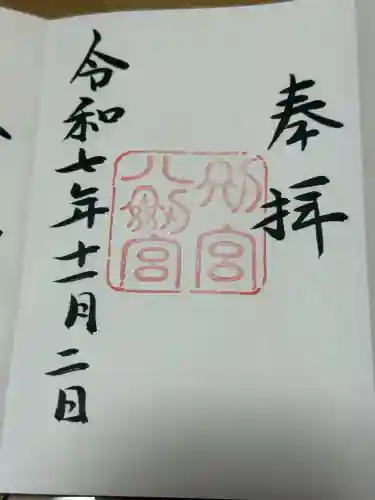 奉拝
別宮
八剣宮
令和七年十一月二日